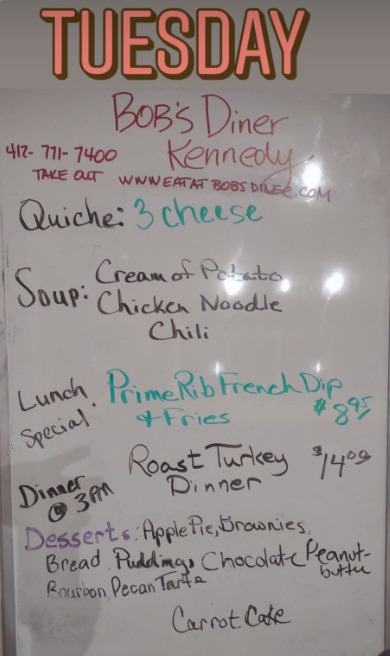 TUESDAY
BOB'S Diner
Kennedy
412-771-7400
TAKE OUT WWW.EATATBOBSDINER.COM
Quiche: 3 cheese
Soup: Cream of Potato
Chicken Noodle
Chili
Lunch Special. Prime Rib French Dip
& Fries $8.95
Roast Turkey $14.09
Dinner
Dinner
@ 3PM
Desserts: Apple Pie, Brownies,
Bread Pudding, Chocolate Peanut-
butter
Bourbon Pecan Tarts
Carrot Cake